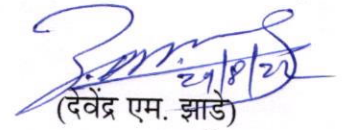 29/8/22
(देवेंद्र एम. झाडे)